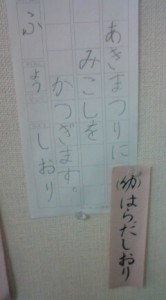 あきまつりに
みこしを
かつぎます
しおり
㊙はらだしおり